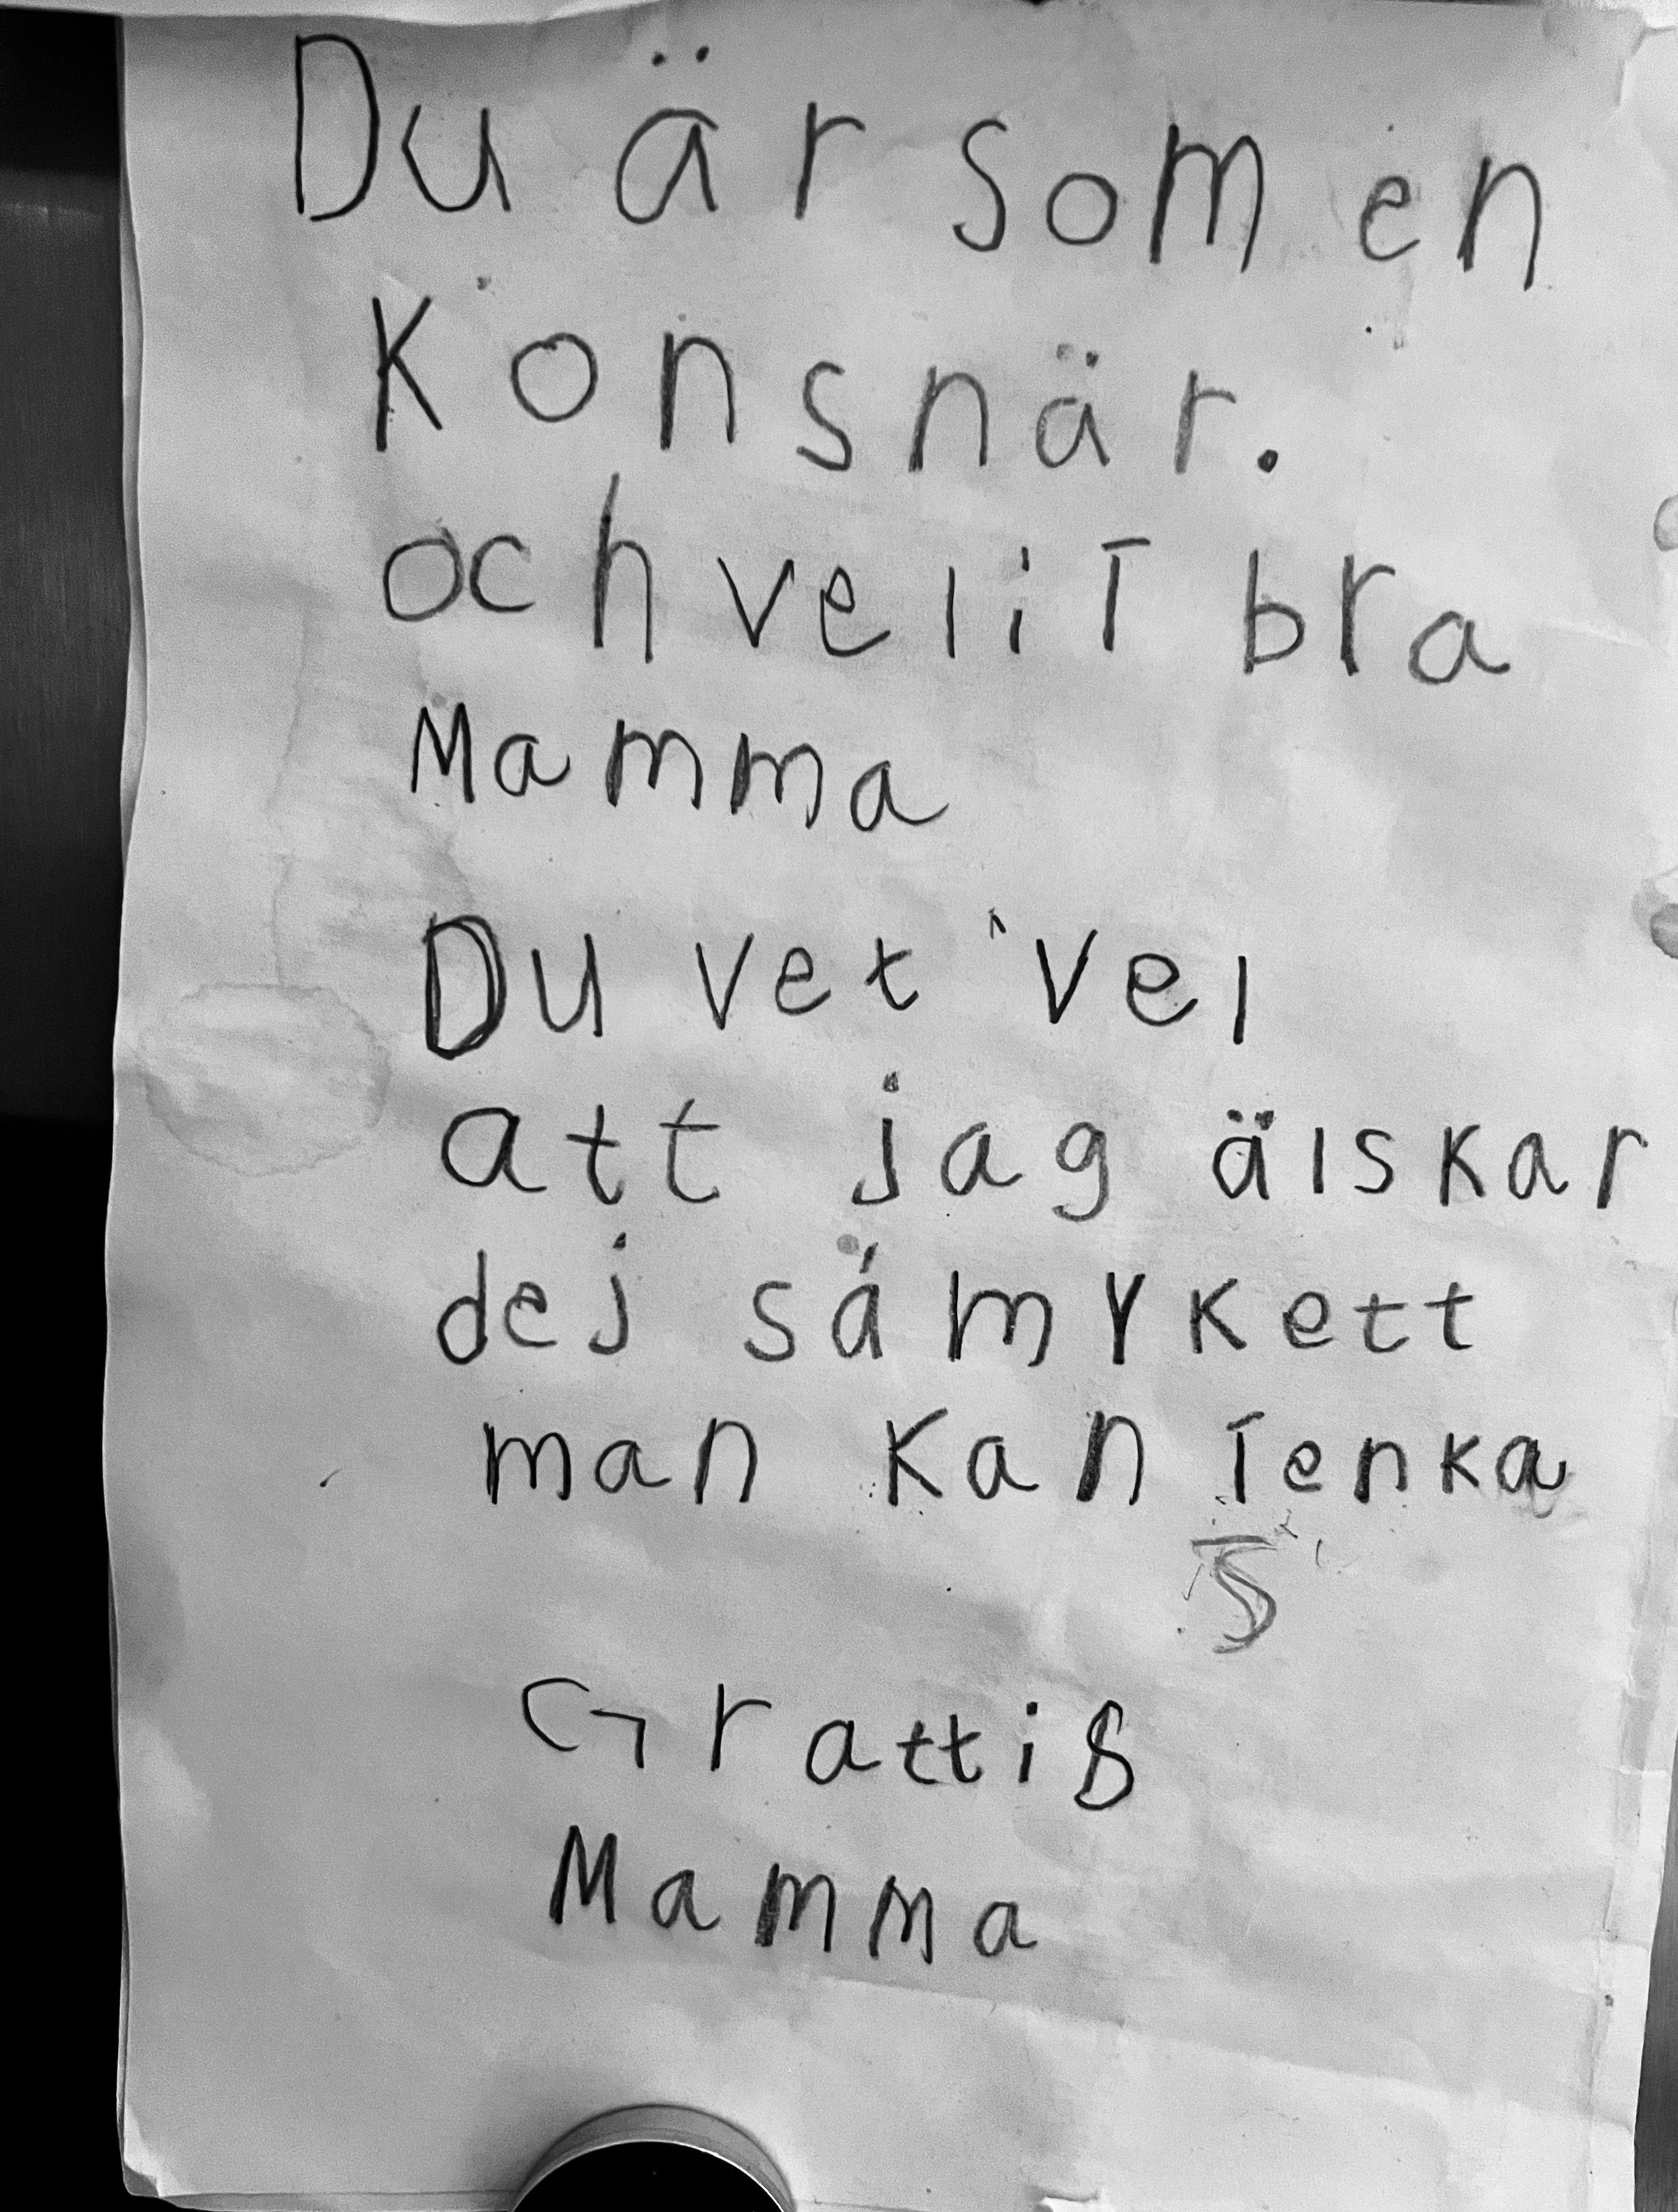 Du är som en
Konsnär.
och velit bra
Mamma
Du vet vel
att jag älskar
dej så mykett
man kan Tenka
Grattis
Mamma